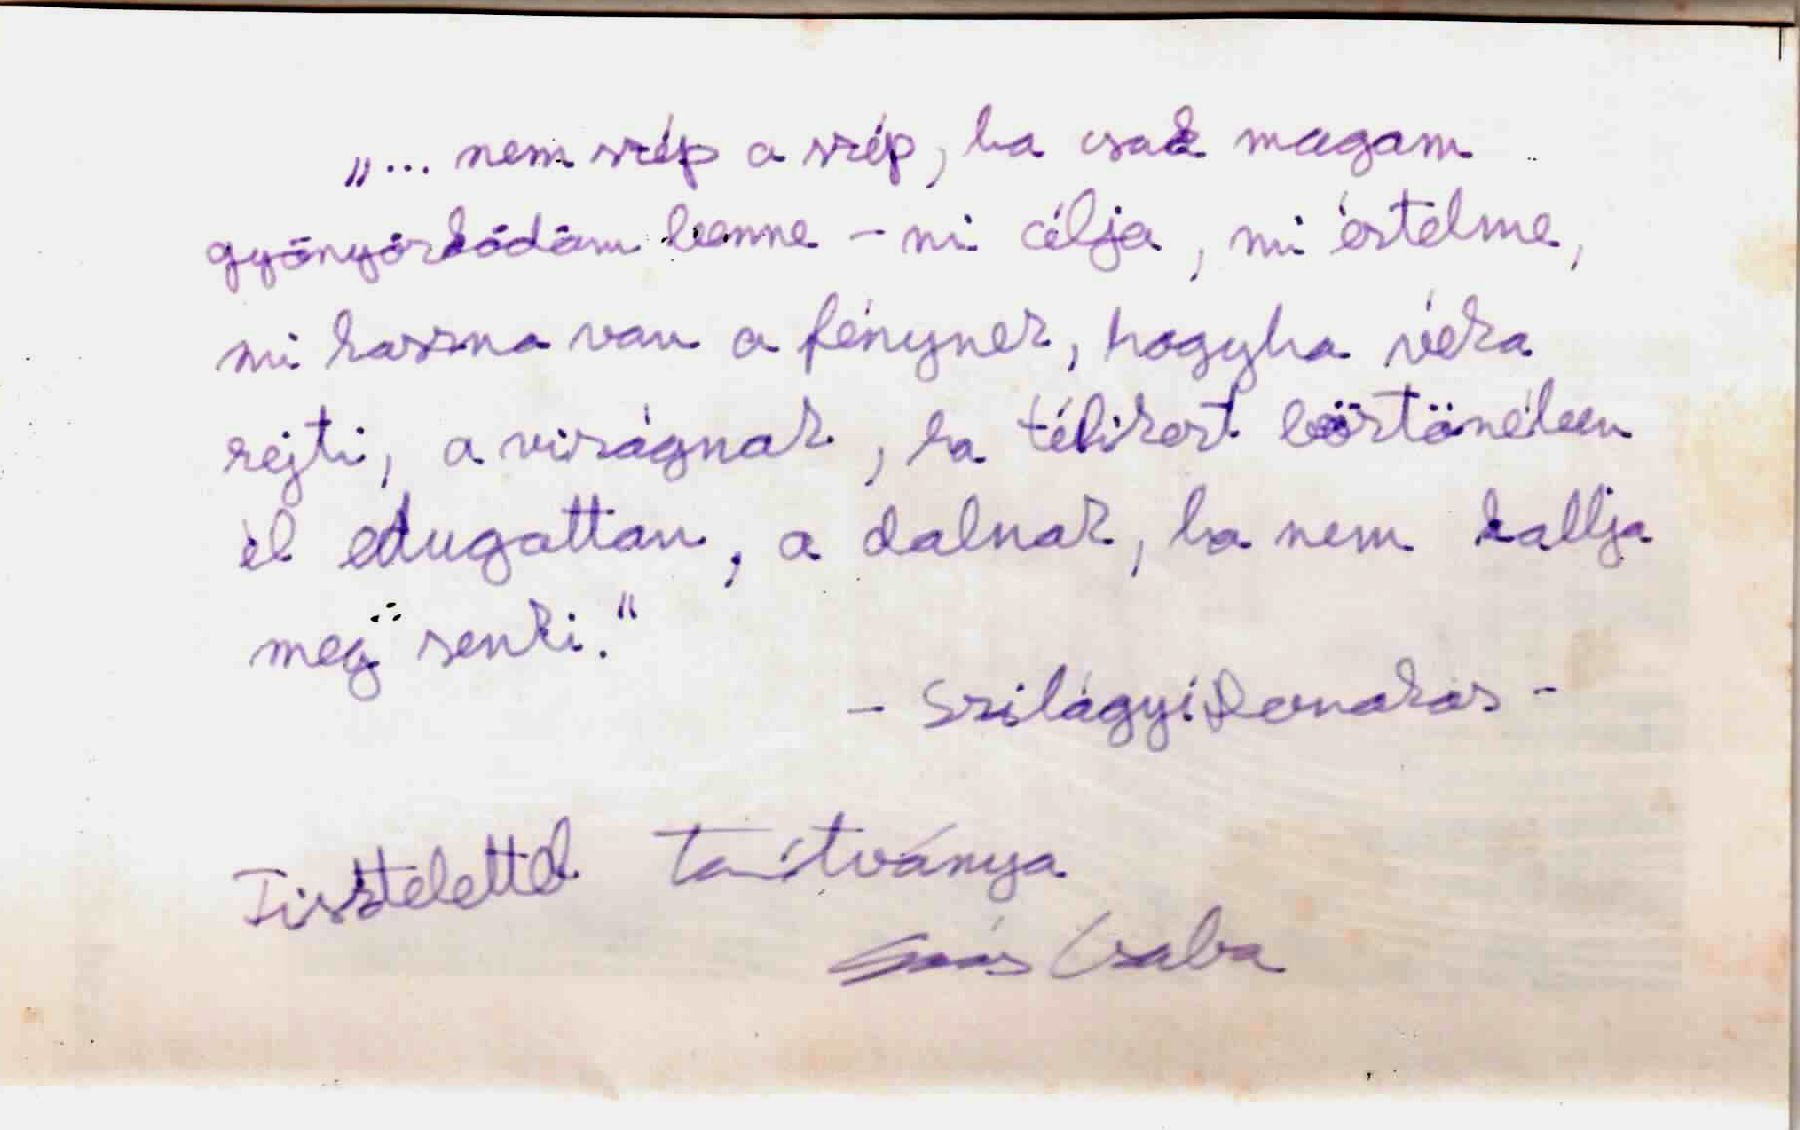 „... nem szép a szép, ha csak magam
gyönyörködöm benne – mi célja, mi értelme,
mi haszna van a fénynek, hogyha véka
rejti, a virágnak, ha télikert börtönében
él eldugottan, a dalnak, ha nem hallja
meg senki."
– Szilágyi Domokos –
Tisztelettel Tanítványa
Csaba